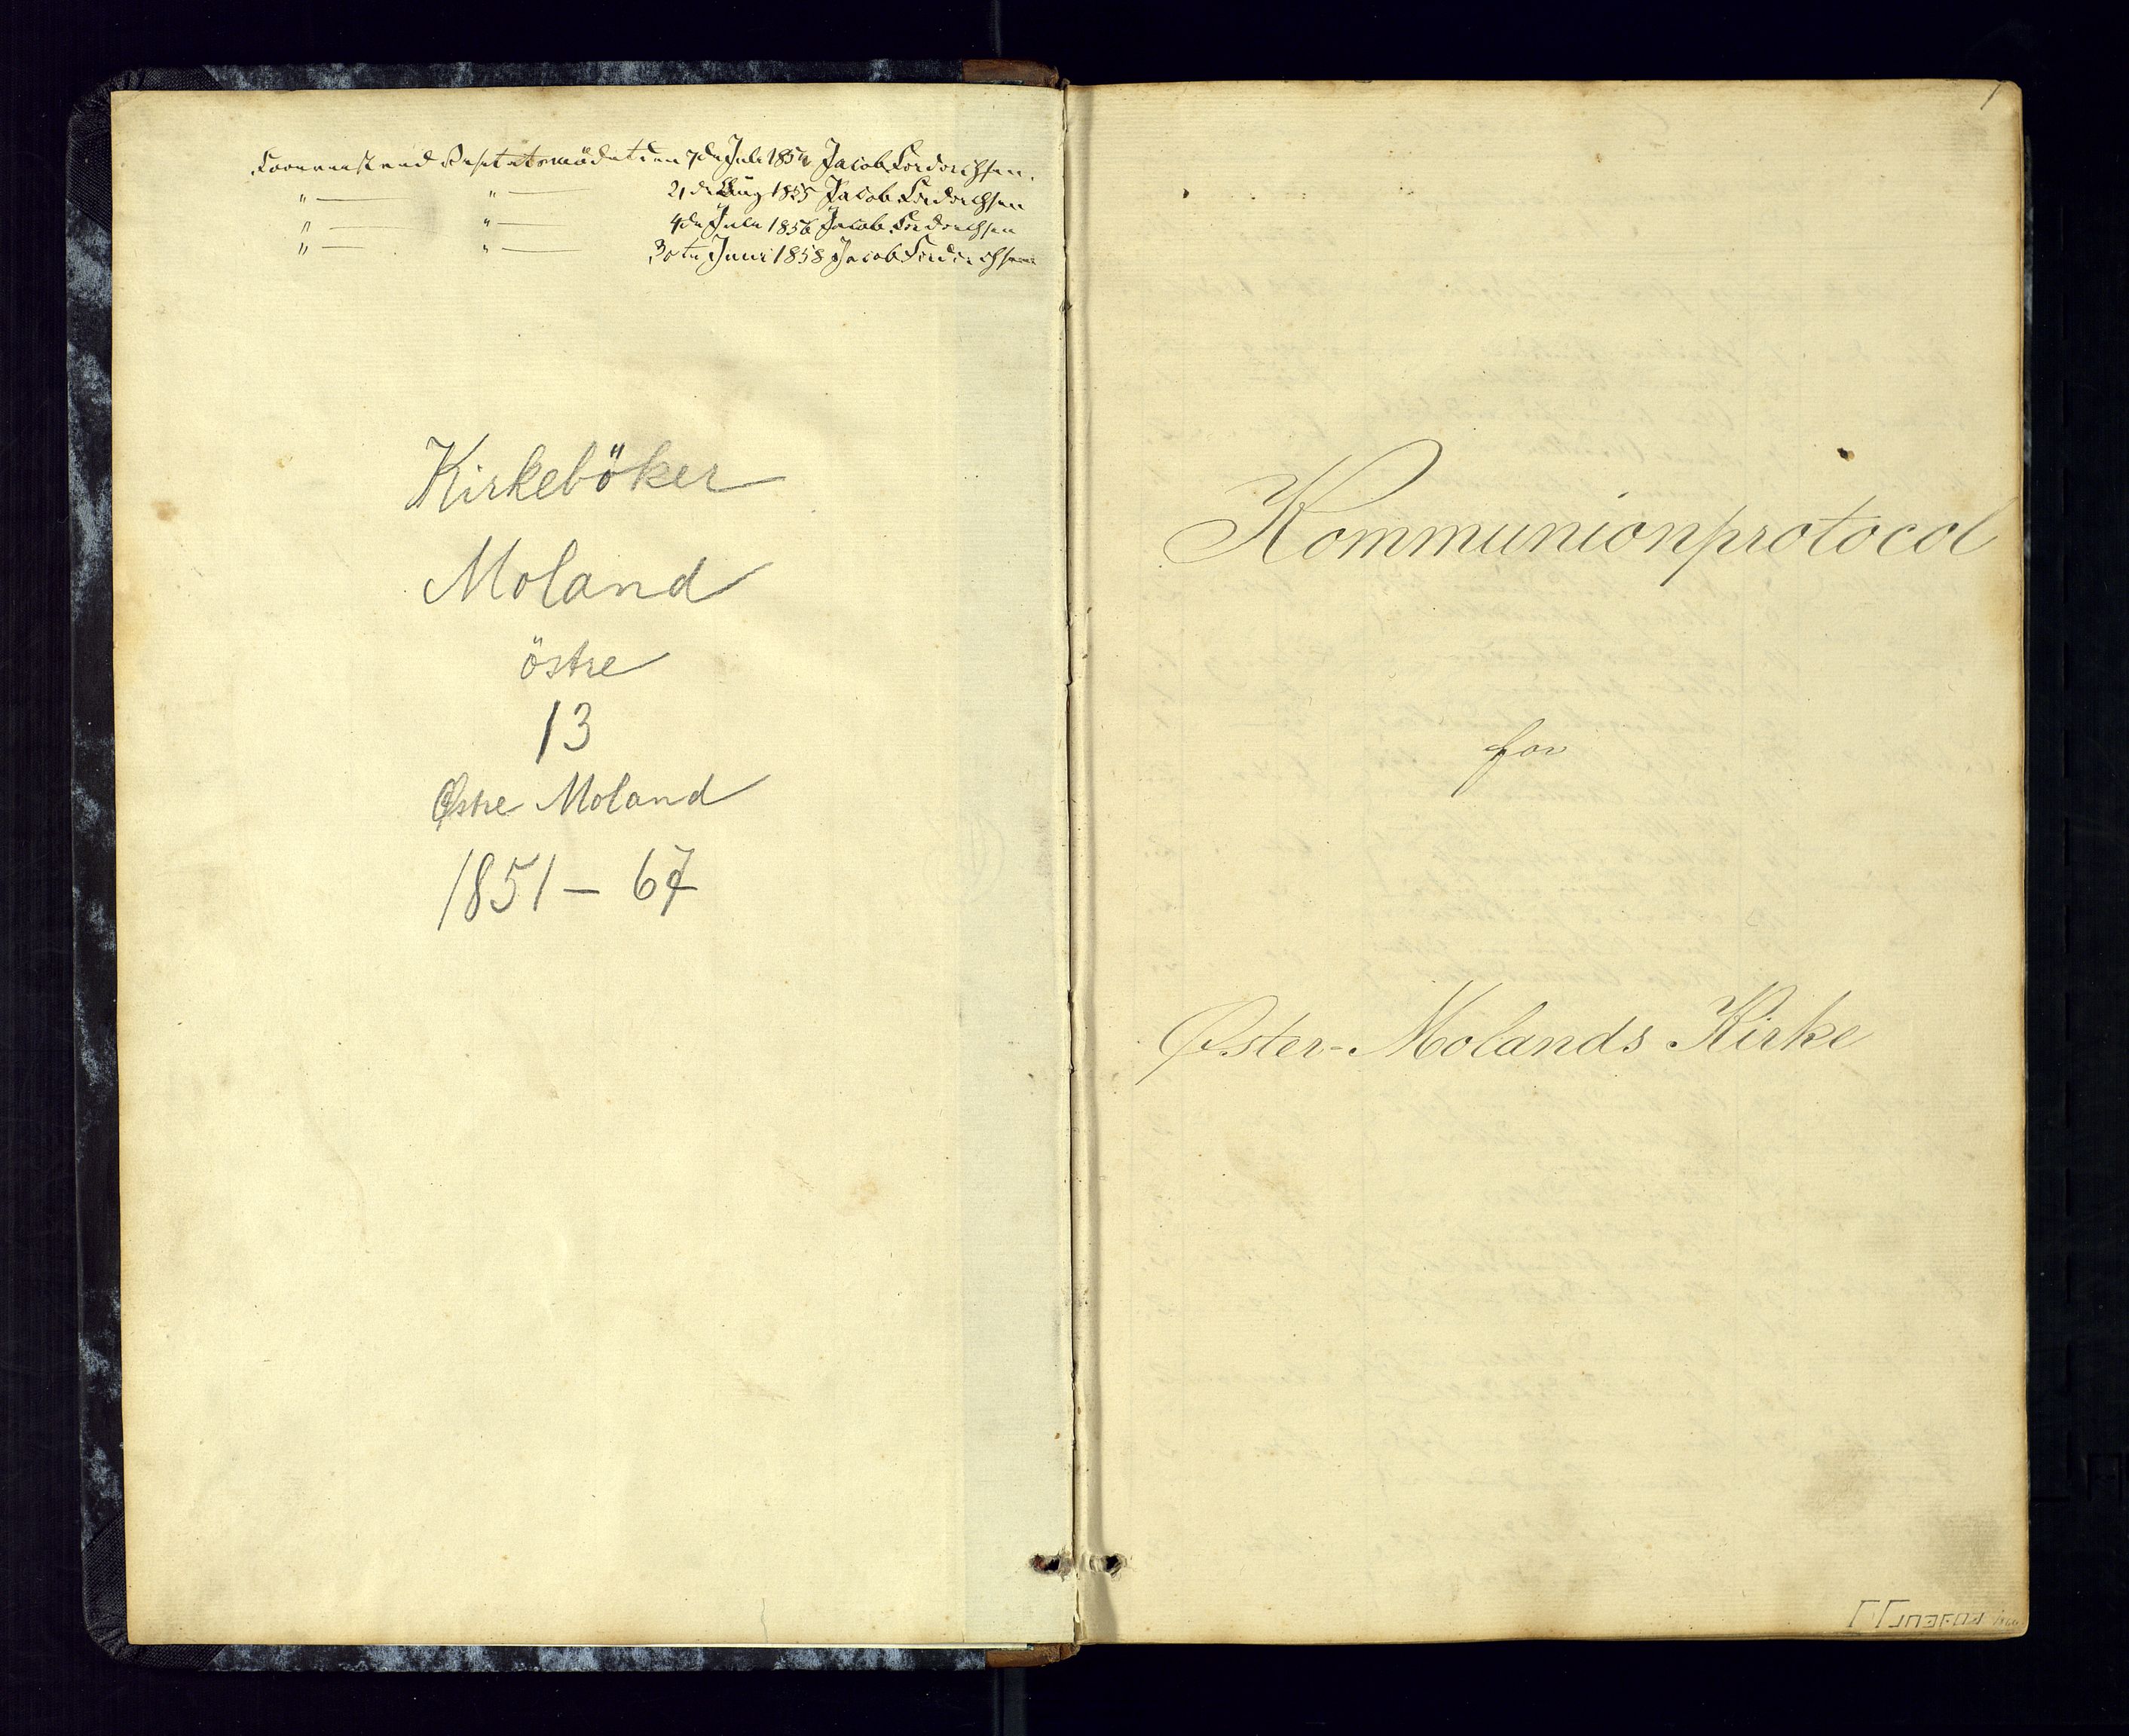 Foreviist ved Visitatsmødet den 7de Juli 1854 Jacob Frederichsen.
" — " — 21de Aug 1855 Jacob Frederichsen
" — " — 4de Juli 1856 Jacob Frederichsen
" — " — 30te Juni 1858 Jacob Frederichsen
Kirkeböker
Moland
östre
13
Østre Moland
1851 - 67
1
Kommunionprotocol
for
Øster-Molands Kirke